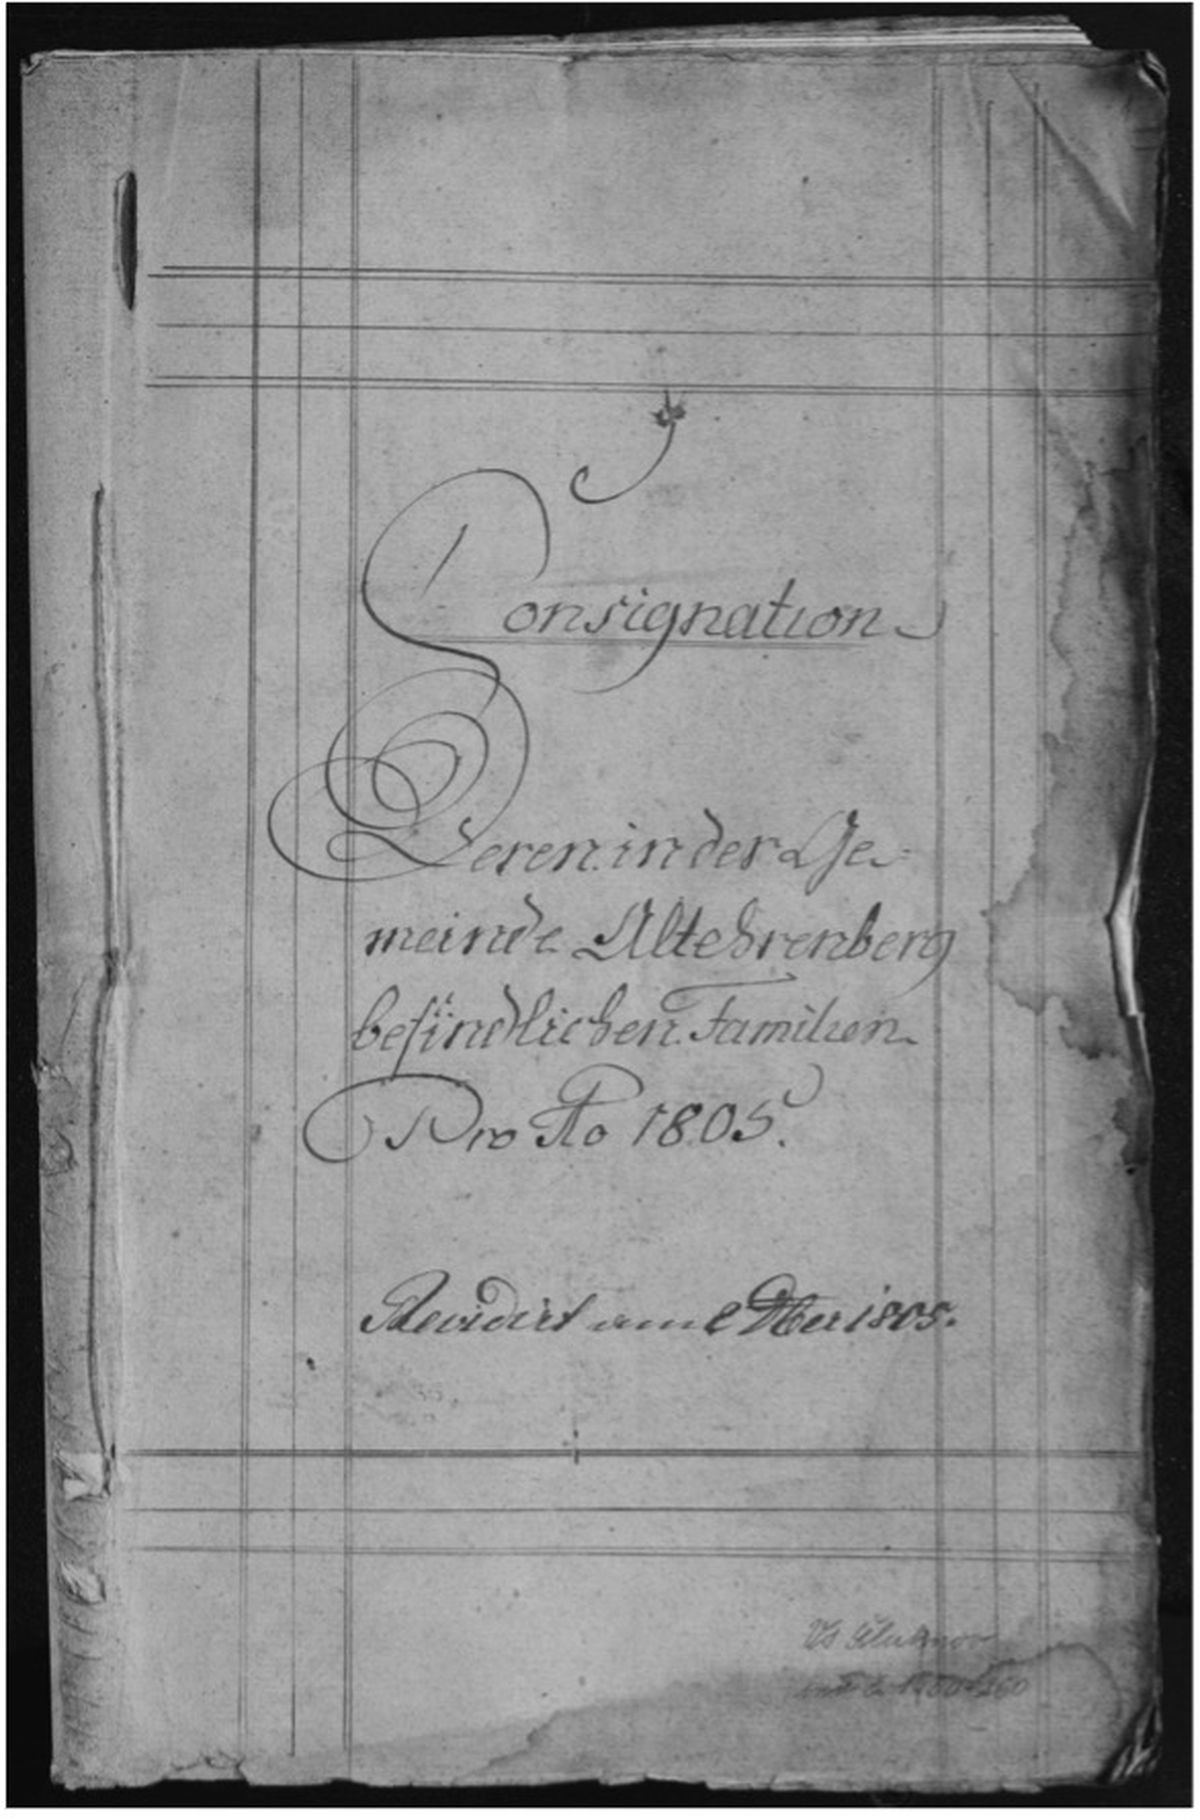 Consignation
Deren in der Ge-
meinde Altehrenberg
befindlichen Familien
Pro Ao 1805.
Revidirt am 1805.
Vs Šluknov